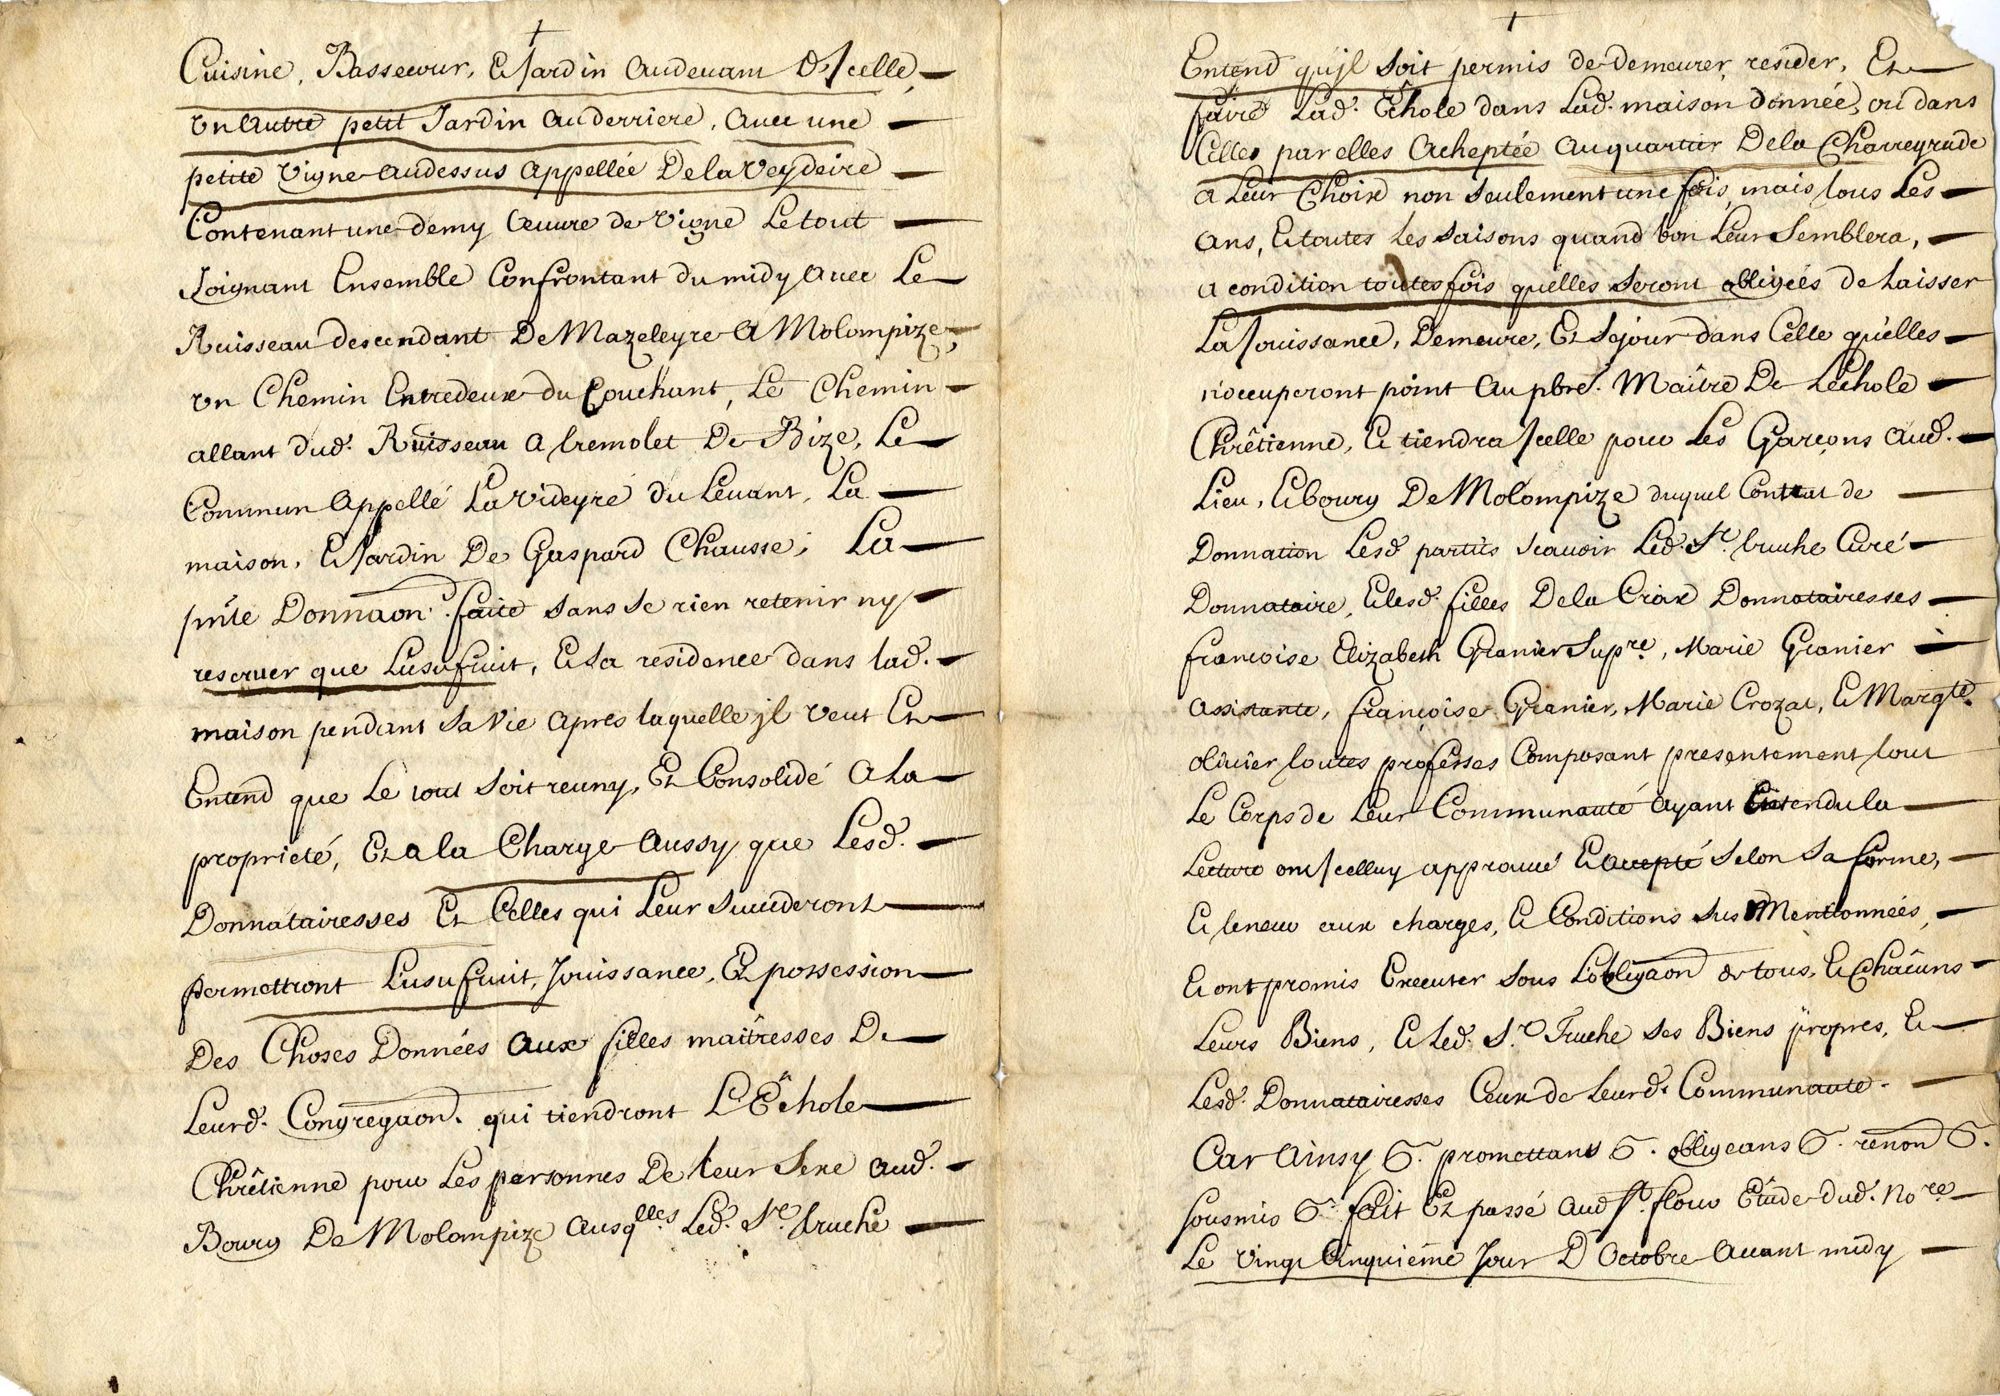 Cuisine, Bassecour, Et Jardin audevant d'Jcelle,
un Autre petit Jardin auderriere, avec une
petite vigne audessus appellée De la Veydeire
Contenant une demy œuvre de vigne Le tout
Joignant Ensemble Confrontant du midy avec Le
Ruisseau descendant De Mazeleyre A Molompize,
un Chemin Entredeux du Couchant, Le Chemin
allant dud. Ruisseau a tremolet De Bize, Le
Commun Appellé La Videyre du Levant, La
maison, Et Jardin De Gaspard Chausse; La
pnte Donnaon. faite sans se rien retenir ny
reserver que Lusufruit, Et la residence dans lad.
maison pendant sa vie apres laquelle jl veut Et
Entend que Le tout soit reuny, Et Consolidé A la
proprieté, Et a la Charge aussy que Lesd.
Donnatairesses Et Celles qui Leur succederont
permettront L'usufruit, Jouissance, Et possession
Des Choses Données aux filles maîtresses De
Leurd. Congregaon. qui tiendront L'Êchole
Chrêtienne pour Les personnes De leur sexe aud.
Bourg De Molompize ausqlles Led. Sr. truche
Entend qu'jl soit permis de demeurer, resider, Et
faire Lad. Êchole dans Lad. maison donnée, ou dans
Celles par elles Acheptée au quartier De la Charreyrade
a Leur Choix non seulement une fois, mais tous Les
ans, Et toutes Les saisons quand bon Leur semblera,
a condition toutesfois quelles seront obligées de Laisser
La Jouissance, Demeure, Et sejour dans Celle quelles
n'occuperont point au pbre. Maître De Lechole
Chrêtienne, Et tiendra Jcelle pour Les Garçons aud.
Lieu, Et bourg De Molompize duquel Contrat de
Donnation Lesd. parties scavoir Led. Sr. truche Curé
Donnataire, Et lesd. filles De la Croix Donnatairesses
françoise Elizabeth Granier Supre, Marie Granier
Assistante, françoise Granier, Marie Crozat, Et Margte.
olivier toutes professes Composant presentement tout
Le Corps de Leur Communauté ayant Entendu la
Lecture ont Jcelluy approuvé Et accepté selon sa forme,
Et teneur aux charges, Et Conditions sus Mentionnées,
Et ont promis Executer sous L'obligaon de tous, Et Châcuns
Leurs Biens, Et Led. Sr. Truche ses Biens propres, Et
Lesd. Donnatairesses Ceux de Leurd. Communauté.
Car Ainsy &. promettans &. obligeans &. renon &.
sousmis &. fait Et passé aud St. flour Etude dud. Nore
Le vingt Cinquiême Jour D'Octobre avant midy